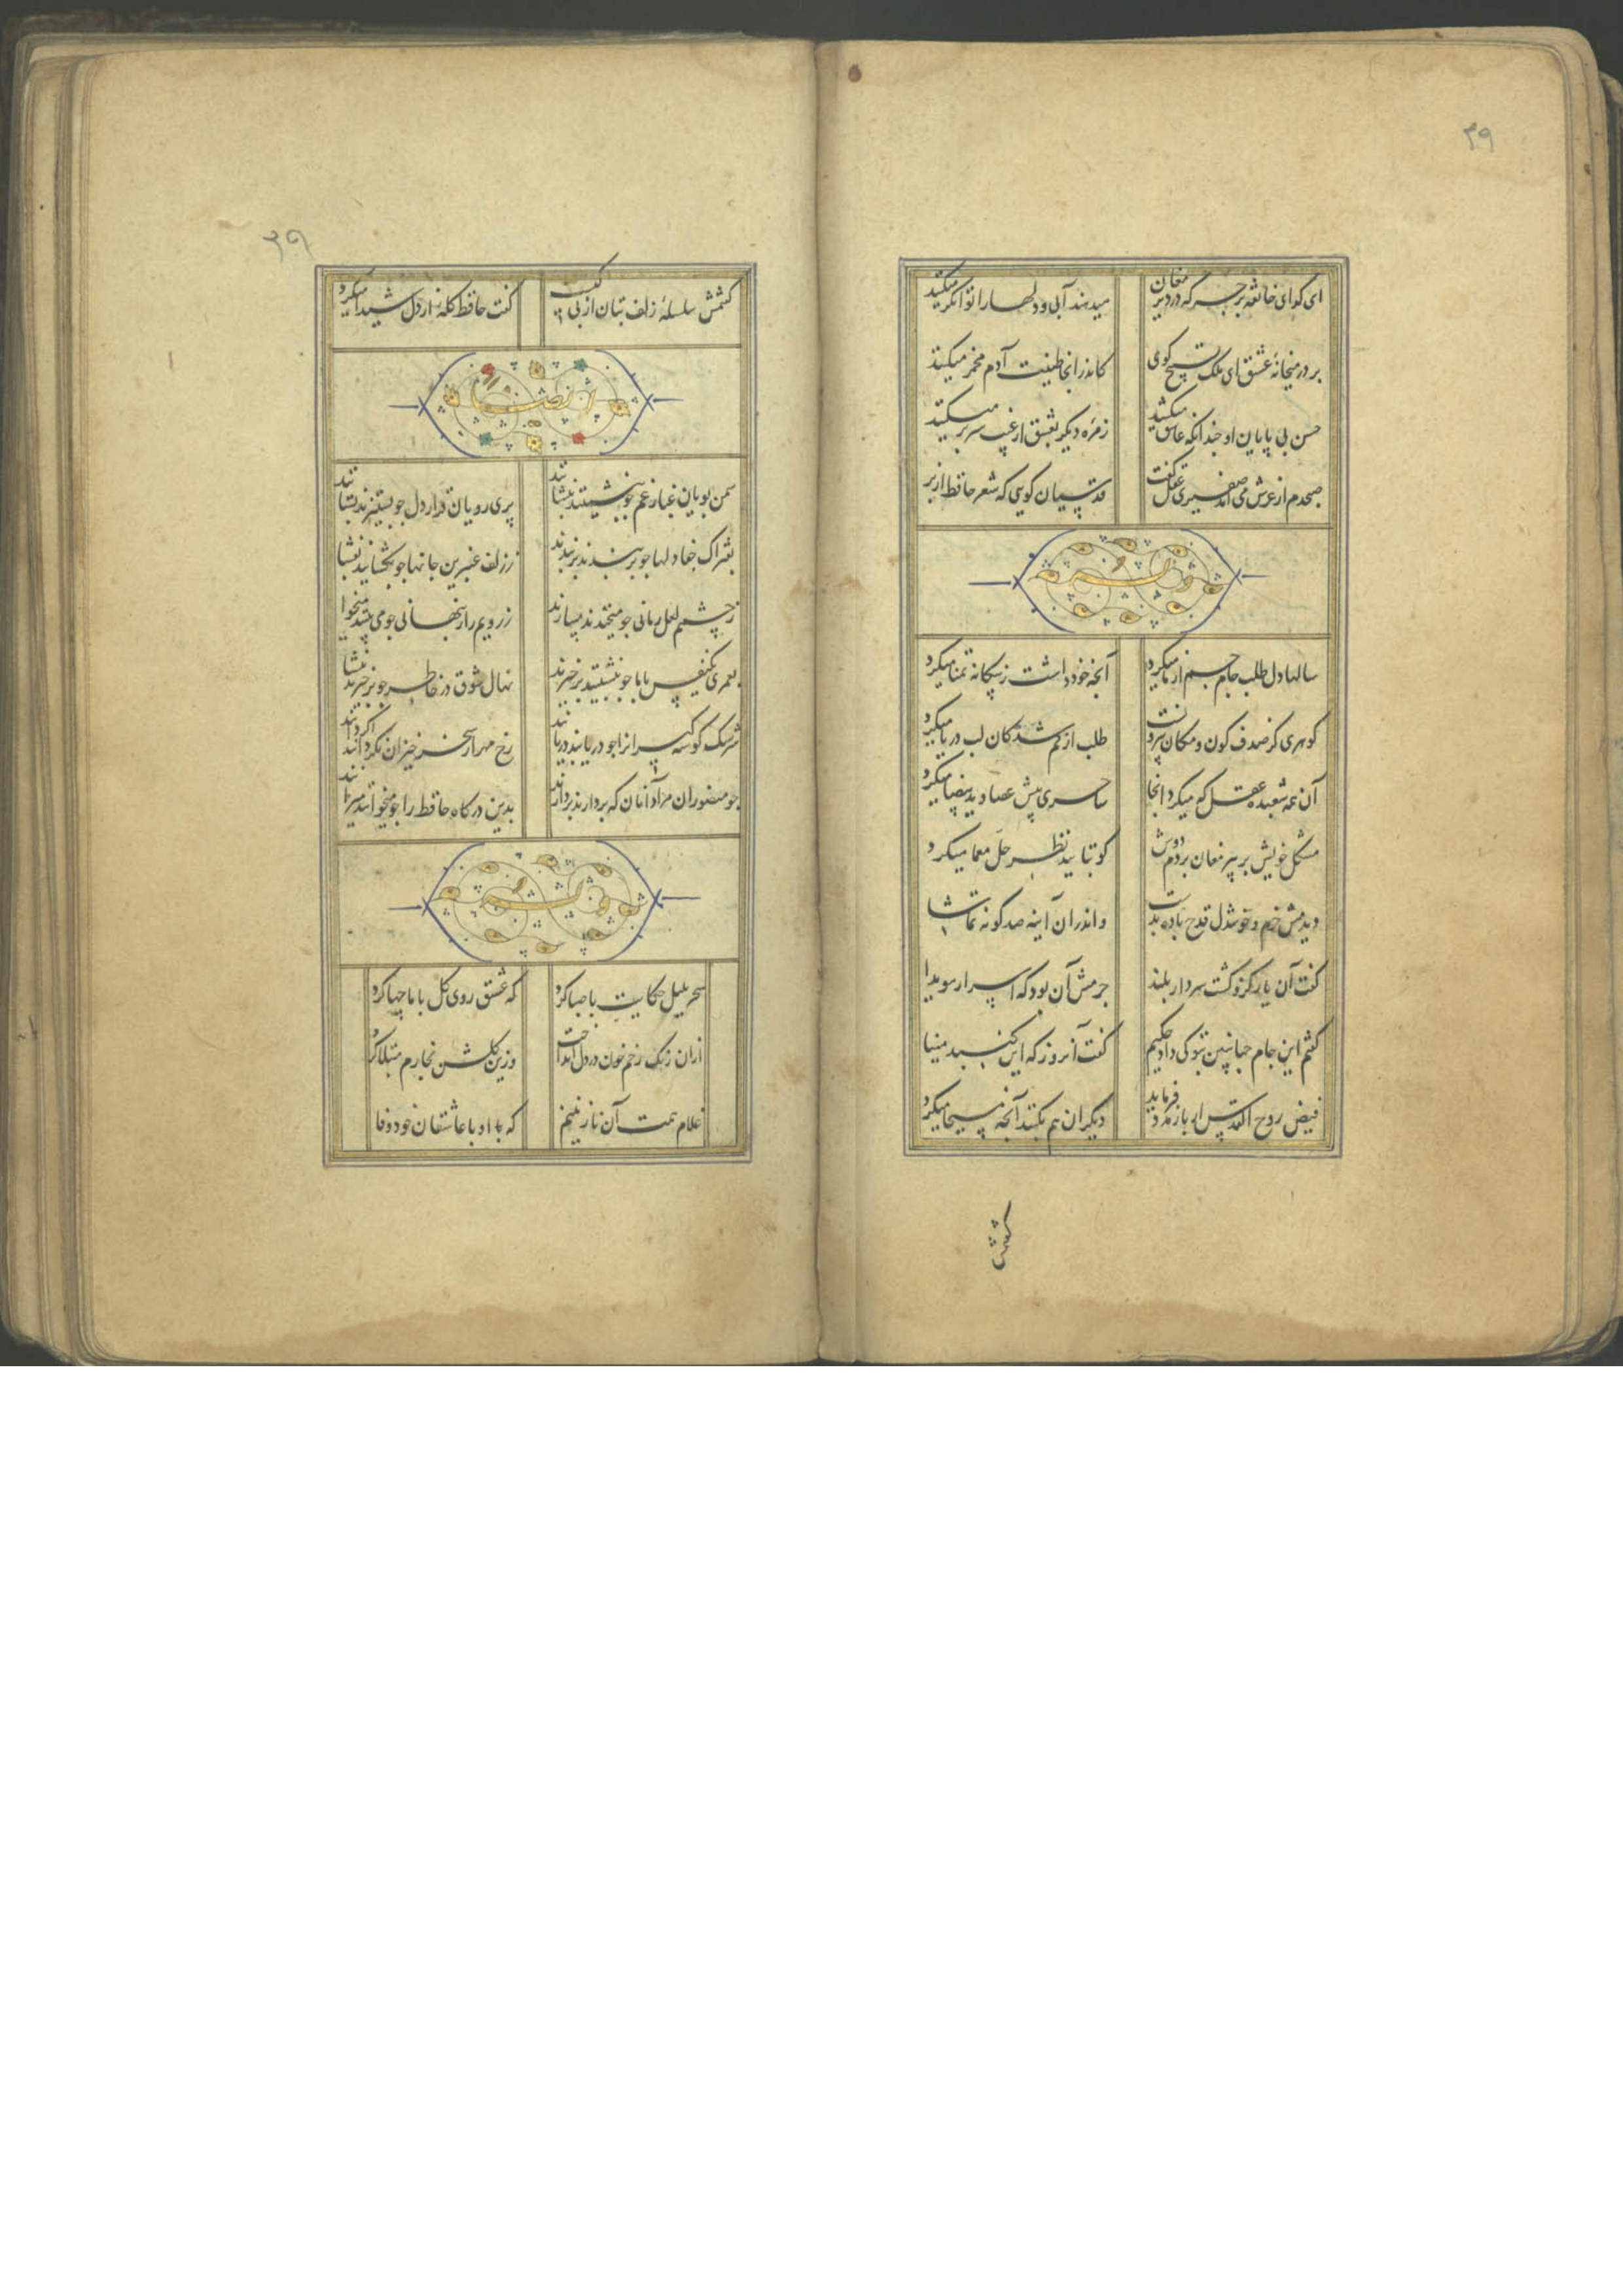 ۳۹
ای گدای خانقه برجه که در دیر مغان میدهند آبی و دلها را توانگر میکنند
بر در میخانهٔ عشق ای ملک تسبیح گوی کاندر انجا طینت آدم مخمر میکنند
حسن بی پایان او چندانکه عاشق میکشد زمرهٔ دیگر بعشق از غیب سر بر میکنند
صبحدم از عرش می آمد صفیری عقل گفت قدسیان گویی که شعر حافظ از بر
وله
سالها دل طلب جام جم از ما میکرد آنچه خود داشت ز بیگانه تمنا میکرد
گوهری کز صدف کون و مکان بیرونست طلب از گم شدگان لب دریا میکرد
آن همه شعبده عقل که میکرد انجا سامری پیش عصا و ید بیضا میکرد
مشکل خویش بر پیر مغان بردم دوش کو بتایید نظر حل معما میکرد
دیدمش خرم و خوشدل قدح باده بدست و اندران آینه صد گونه تماشا
گفت آن یار کزو گشت سر دار بلند جرمش آن بود که اسرار هویدا
گفتم این جام جهانبین بتو کی داد حکیم گفت آنروز که این گنبد مینا
فیض روح القدس ار باز مدد فرماید دیگران هم بکنند آنچه مسیحا میکرد
گفتمش
۳۹
گفتمش سلسلهٔ زلف بتان از پی چیست گفت حافظ گلهٔ از دل شیدا میکرد
سمن بویان غبار غم چو بنشینند بنشانند پری رویان قرار دل چو بستیزند بستانند
بفتراک جفا دلها چو بربندند بربندند ز زلف عنبرین جانها چو بگشایند بفشا
ز چشمم لعل رمانی چو میخندند میبارند ز رویم راز پنهانی چو می بینند میخوا
بعمری یکنفس با ما چو بنشینند برخیزند نهال شوق در خاطر چو برخیزند بنشا
سرشک گوشه گیرانرا چو دریابند دریابند رخ مهر از سحر خیزان نگردانند اگر دانند
چو منصوران مراد آنان که بردارند بردارند بدین درگاه حافظ را چو میخوانند میرانند
وله
سحر بلبل حکایت با صبا کرد که عشق روی گل با ما چها کرد
ازان رنگ رخم خون در دل انداخت وزین گلشن بخارم مبتلا کرد
غلام همت آن نازنینم که با او با عاشقان خود وفا